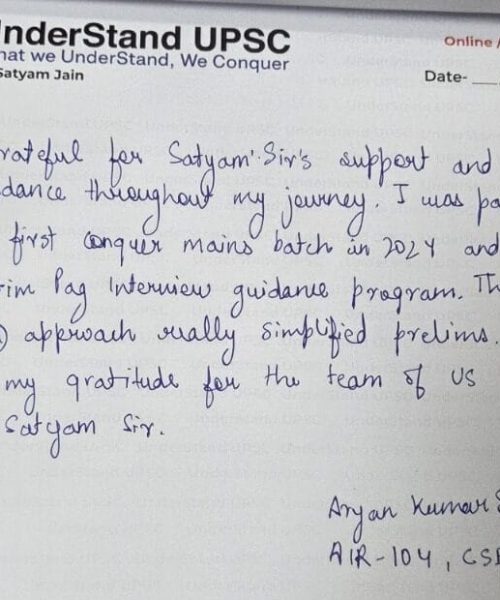 nderStand UPSC
hat we UnderStand, We Conquer
Satyam Jain
Online /
Date-
rateful for Satyam Sir's support and
dance throughout my journey. I was pa
first Conquer mains batch in 2024 and
Interview guidance program. Th
approach really simplified prelims.
my gratitude for the team of US
Satyam Sir.
Aryan Kumar
AIR-104, CSE